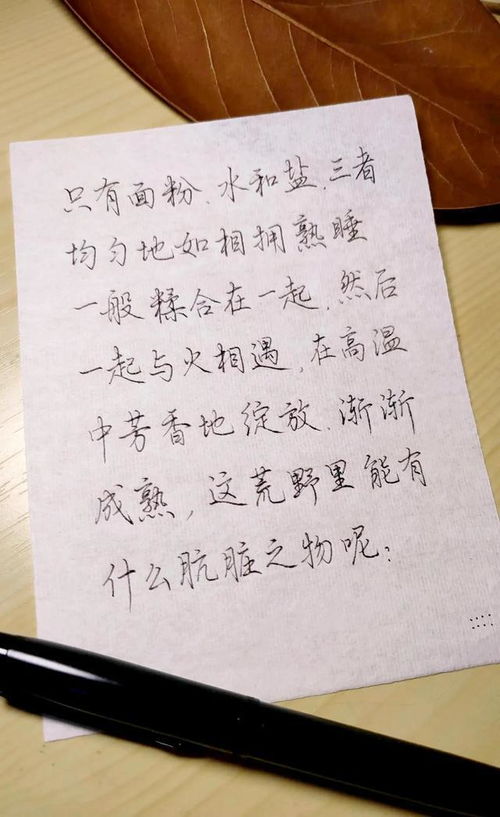 只有面粉、水和盐、三者
均匀地如相拥熟睡
一般糅合在一起、然后
一起与火相遇、在高温
中芳香地绽放、渐渐
成熟，这荒野里能有
什么肮脏之物呢；